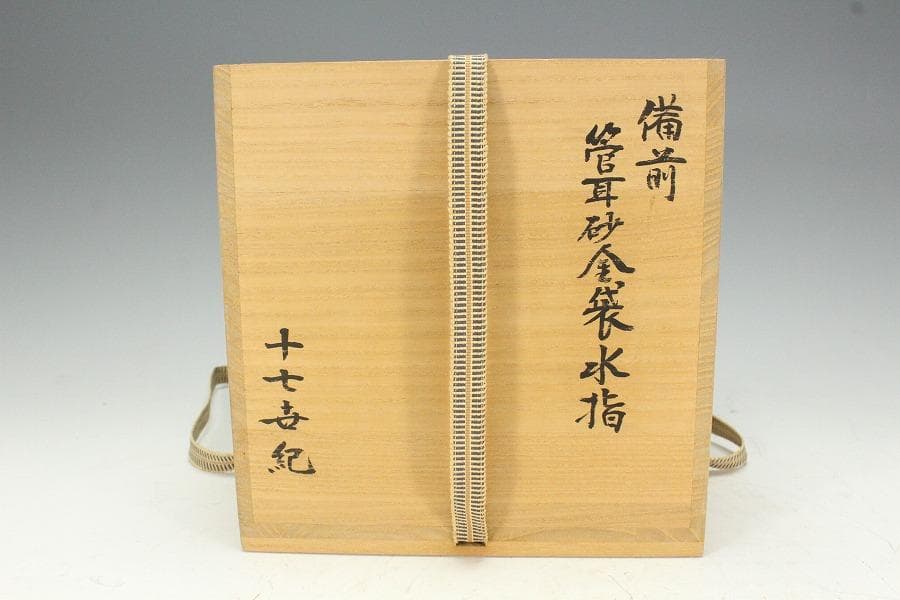 備前
管耳砂金袋水指
十七世紀